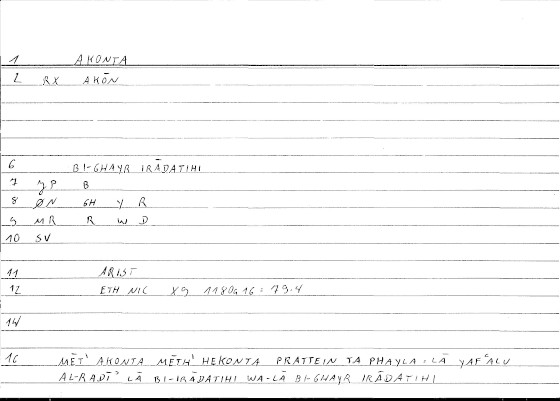 1 AKONTA
2 RX AKŌN
6 BI-GHAYR IRĀDATIHI
7 JP B
8 ØN GH Y R
9 MR R W D
10 SV
11 ARIST
12 ETH NIC X9 1180a16 = 79.4
14
16 MĒT' AKONTA MĒTH' HEKONTA PRATTEIN TA PHAYLA = LĀ YAFʿALU
AL-RADĪ' LĀ BI-IRĀDATIHI WA-LĀ BI-GHAYR IRĀDATIHI